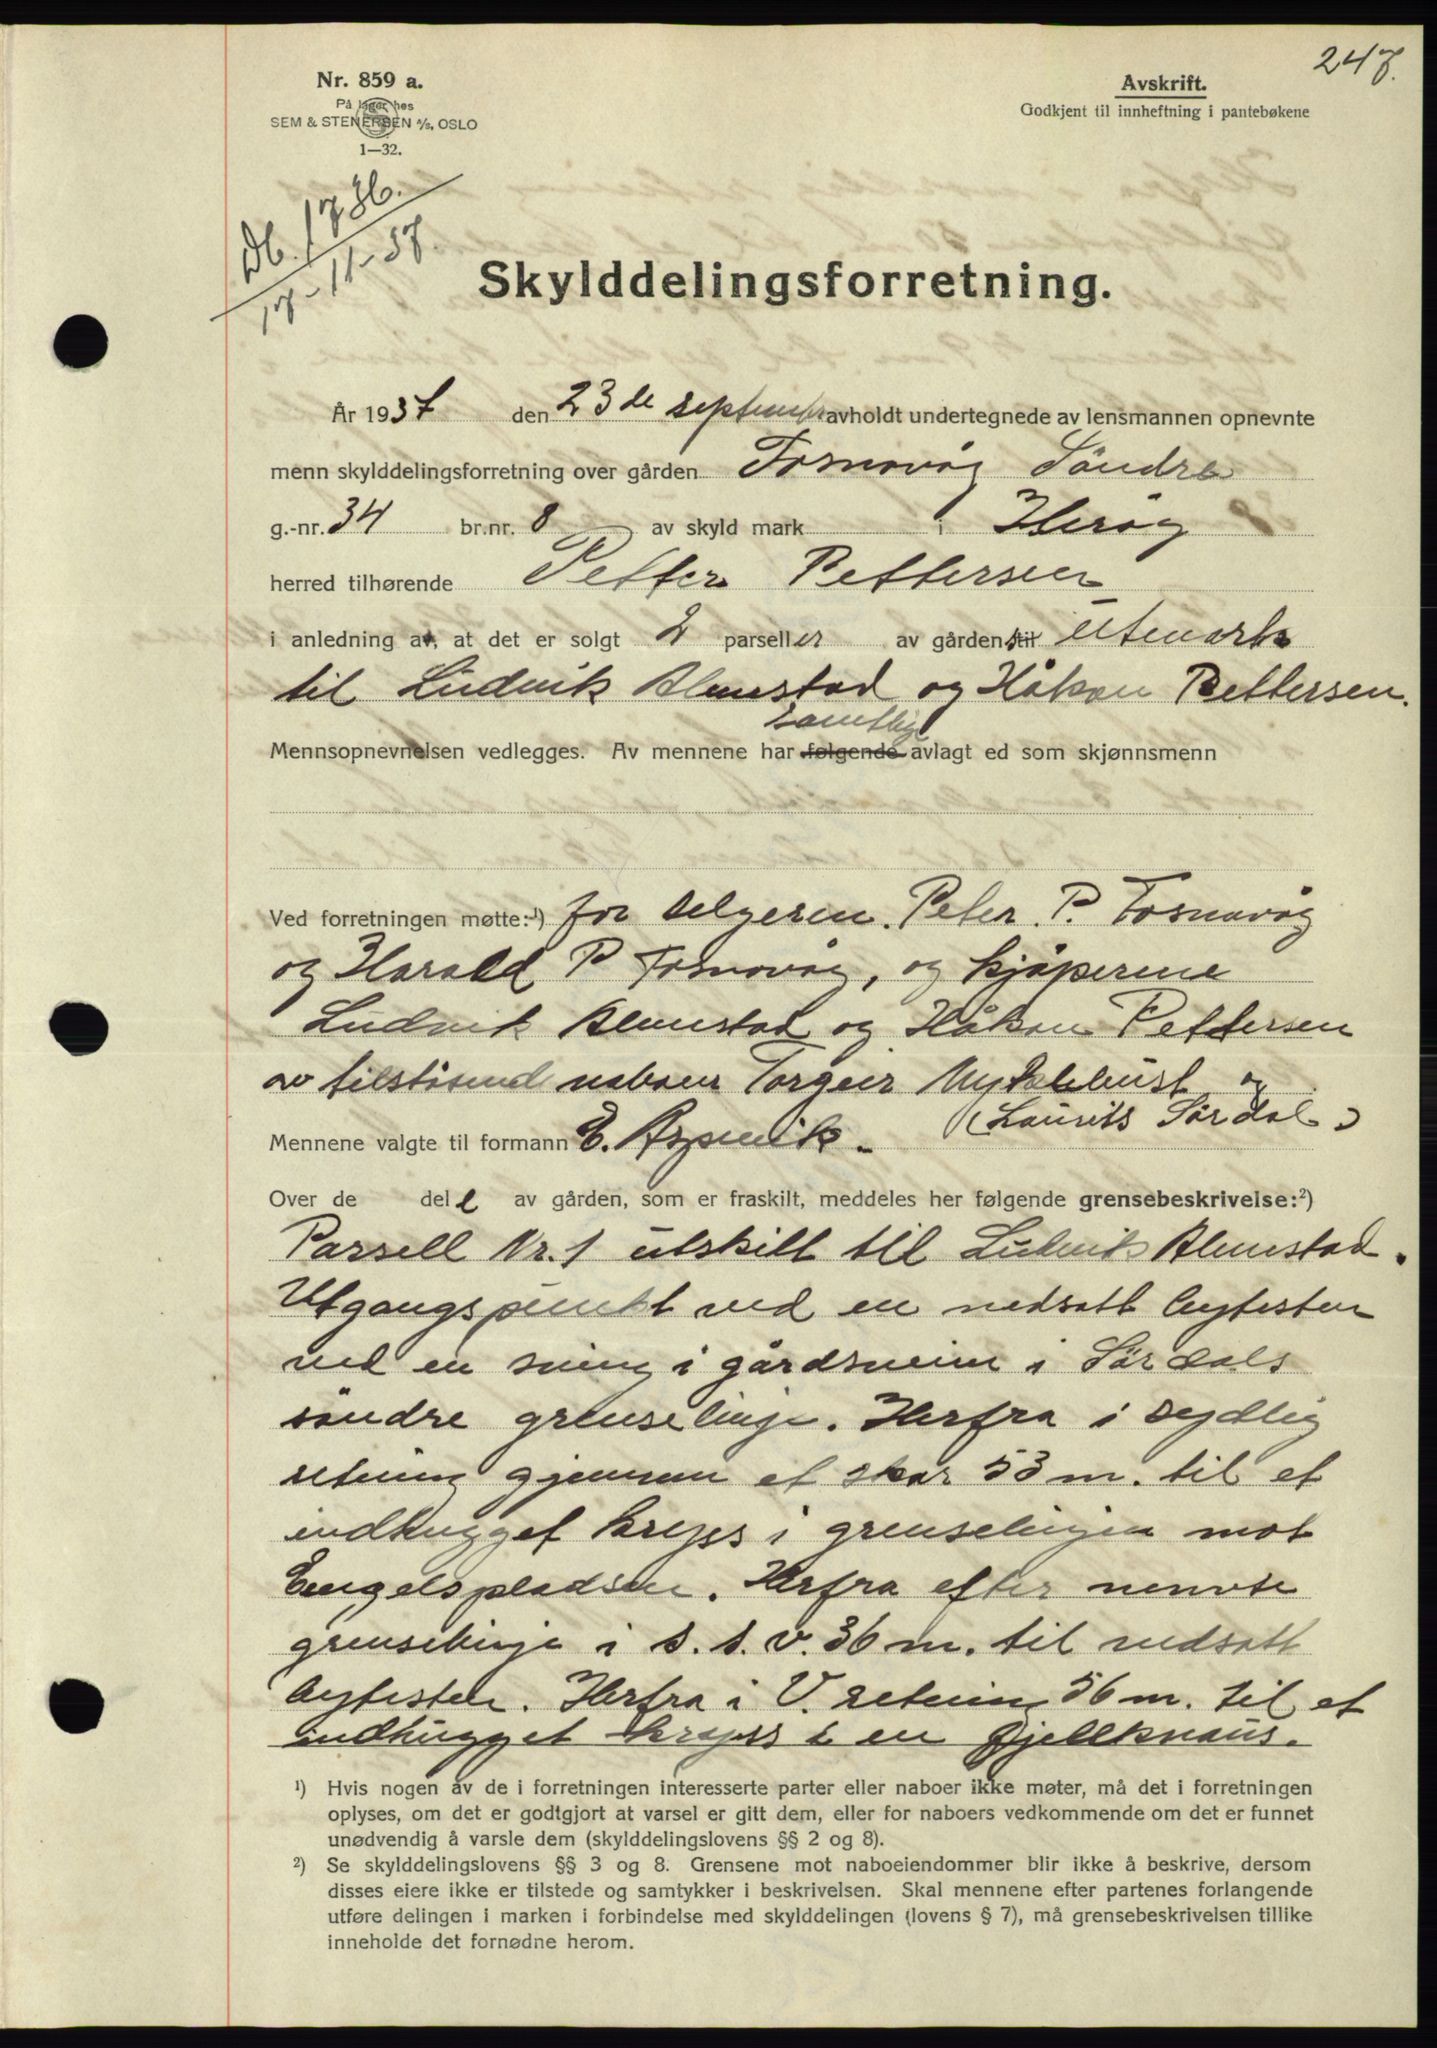 247.
Nr. 859 a.
På lager hos
SEM & STENERSEN A/S, OSLO
1—32.
Avskrift.
Godkjent til innheftning i pantebøkene
Db. 1736.
17-11-37.
Skylddelingsforretning.
År 1937 den 23de september avholdt undertegnede av lensmannen opnevnte
menn skylddelingsforretning over gården Fosnavåg Söndre
g.-nr. 34 br.nr. 8 av skyld mark i Herøy
herred tilhørende Petter Pettersen
i anledning av, at det er solgt 2 parseller av gårdens til utmark
til Ludvik Almestad og Håkon Pettersen.
samtlige
Mennsopnevnelsen vedlegges. Av mennene har følgende avlagt ed som skjønnsmenn
Ved forretningen møtte:¹) for selgeren. Peter. P. Fosnavåg
og Harald P Fosnavåg, og kjöperene
Ludvik Almestad og Håkon Pettersen
av tilstösend naboer Torgeir Myklebust og
(Laurits Sördal)
Mennene valgte til formann E. Aspevik.
Over de dele av gården, som er fraskilt, meddeles her følgende grensebeskrivelse:²)
Parsell Nr. 1 utskilt til Ludvik Almestad.
Utgangspunkt ved en nedsatt bytesten
ved en sving i gårdsveien i Sördals
söndre grenselinje. Herfra i sydlig
retning gjennem et skar 53 m. til et
indhugget kryss i grenselinjen mot
Engelspladsen. Herfra efter nevnte
grenselinje i s.s.v. 36 m. til nedsatt
bytesten. Herfra i V. retning 56 m. til et
indhugget kryss i en fjellknaus.
¹) Hvis nogen av de i forretningen interesserte parter eller naboer ikke møter, må det i forretningen
oplyses, om det er godtgjort at varsel er gitt dem, eller for naboers vedkommende om det er funnet
unødvendig å varsle dem (skylddelingslovens §§ 2 og 8).
²) Se skylddelingslovens §§ 3 og 8. Grensene mot naboeiendommer blir ikke å beskrive, dersom
disses eiere ikke er tilstede og samtykker i beskrivelsen. Skal mennene efter partenes forlangende
utføre delingen i marken i forbindelse med skylddelingen (lovens § 7), må grensebeskrivelsen tillike
inneholde det fornødne herom.